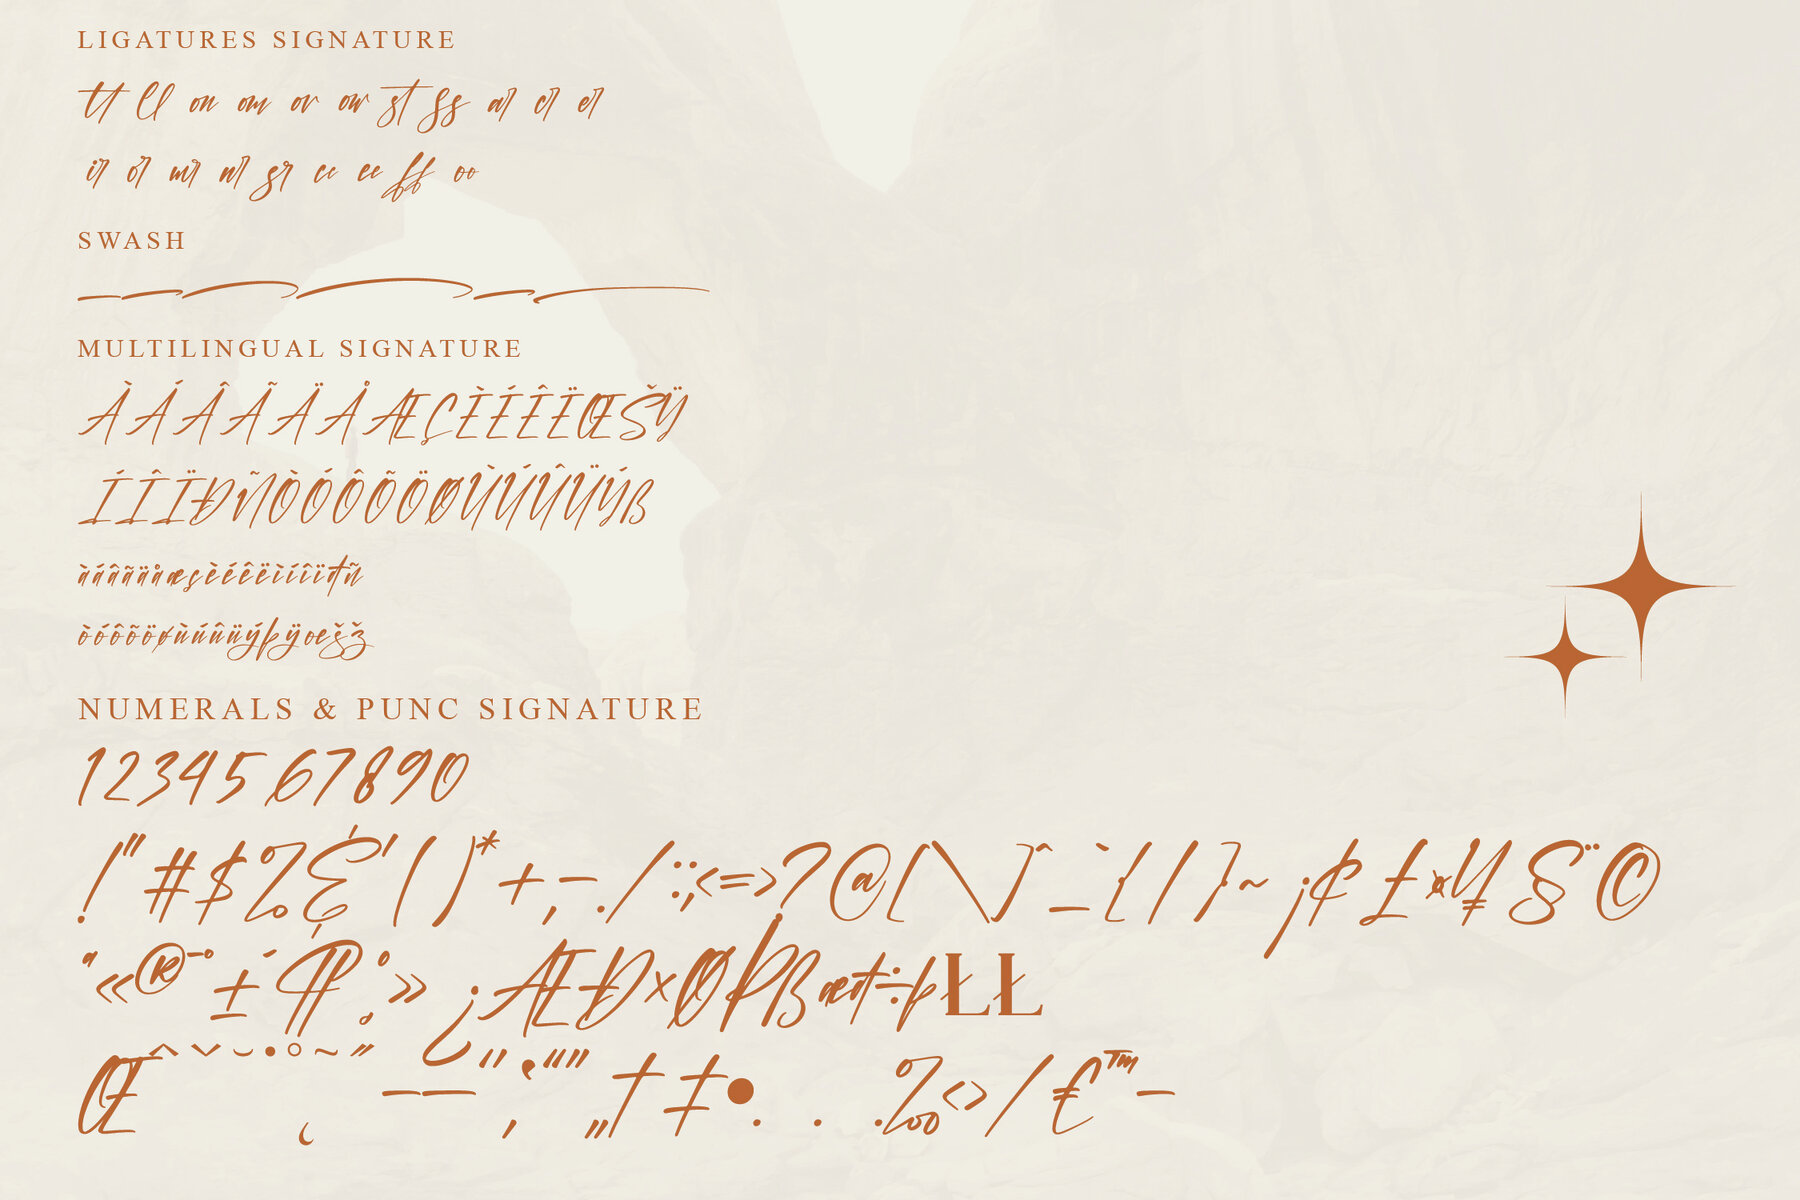 LIGATURES SIGNATURE
tt ll on om or ow st ss ar cr er
ir or mr nr sr cc ee ff oo
SWASH
MULTILINGUAL SIGNATURE
ÀÁÂÃÄÅÆÇÈÉÊËŒŠŸ
ÍÎÏÐÑÒÓÔÕÖØÙÚÛÜÝß
àáâãäåæçèéêëìíîïđñ
òóôõöøùúûüýþÿœšž
NUMERALS & PUNC SIGNATURE
1234567890
!"#$%&'()*+,-./:;<=>?@[\]^_`{|}~¡¢£¤¥§¨©
ª«®¯°±´¶¸º»¿ÆÐ×ØÞßæđ÷þŁŁ
Œˆˇ˘•˚˜˝–—“‚‘“”„†‡•...‰‹›/€™−